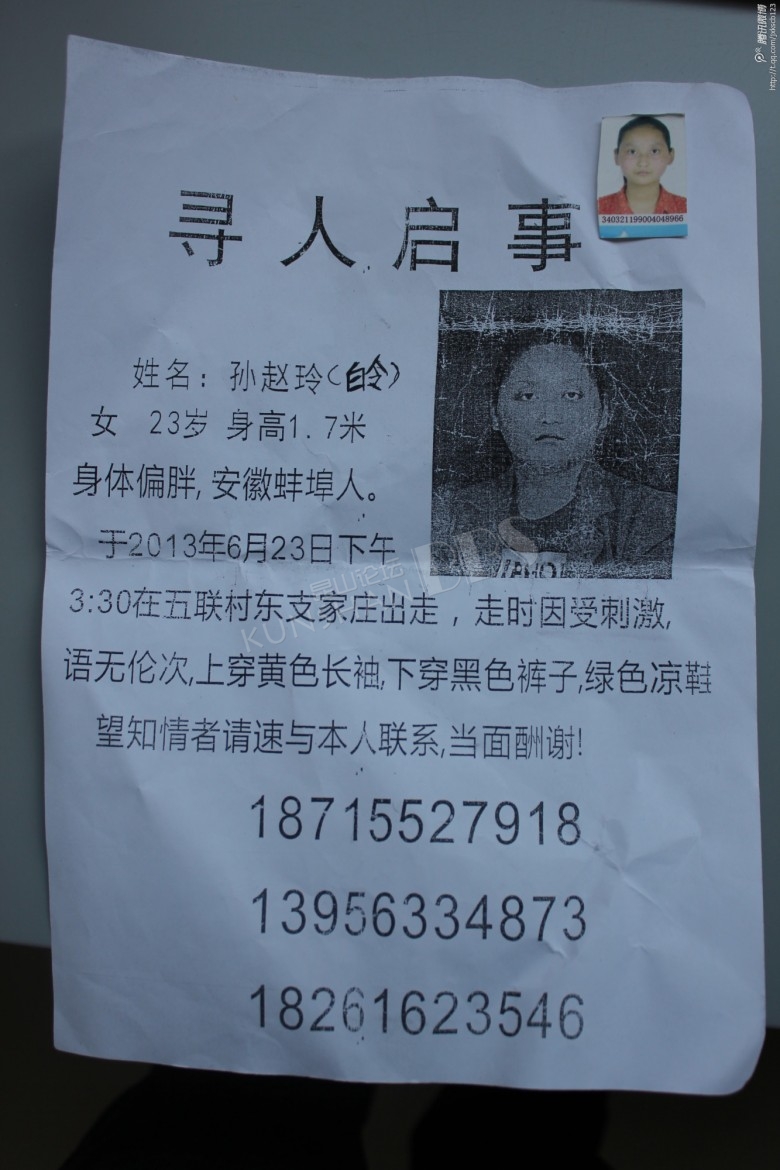 腾讯微博
http://t.qq.com/jxkscb123
寻人启事
340321199004048966
姓名：孙赵玲（伶）
女 23岁 身高1.7米
身体偏胖,安徽蚌埠人。
于2013年6月23日下午
3:30在五联村东支家庄出走，走时因受刺激,
语无伦次,上穿黄色长袖,下穿黑色裤子,绿色凉鞋
望知情者请速与本人联系,当面酬谢!
昆山论坛
KUNSHAN BBS
18715527918
13956334873
18261623546